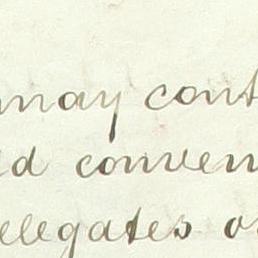 may cont
ld conven
elegates o